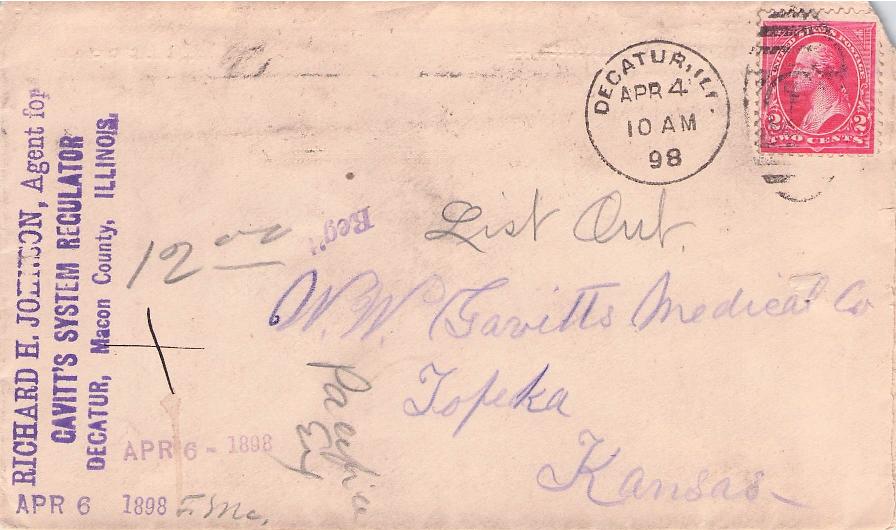 RICHARD H. JOHNSON, Agent for
GAVITT'S SYSTEM REGULATOR
DECATUR, Macon County, ILLINOIS.
DECATUR, ILL.
APR 4
10 AM
98
UNITED STATES POSTAGE
2 2
TWO CENTS
12 00
Reg't
List Out.
W. W. Gavitts Medical Co
Topeka
Kansas
Pacific
Ex
APR 6 - 1898
APR 6 1898